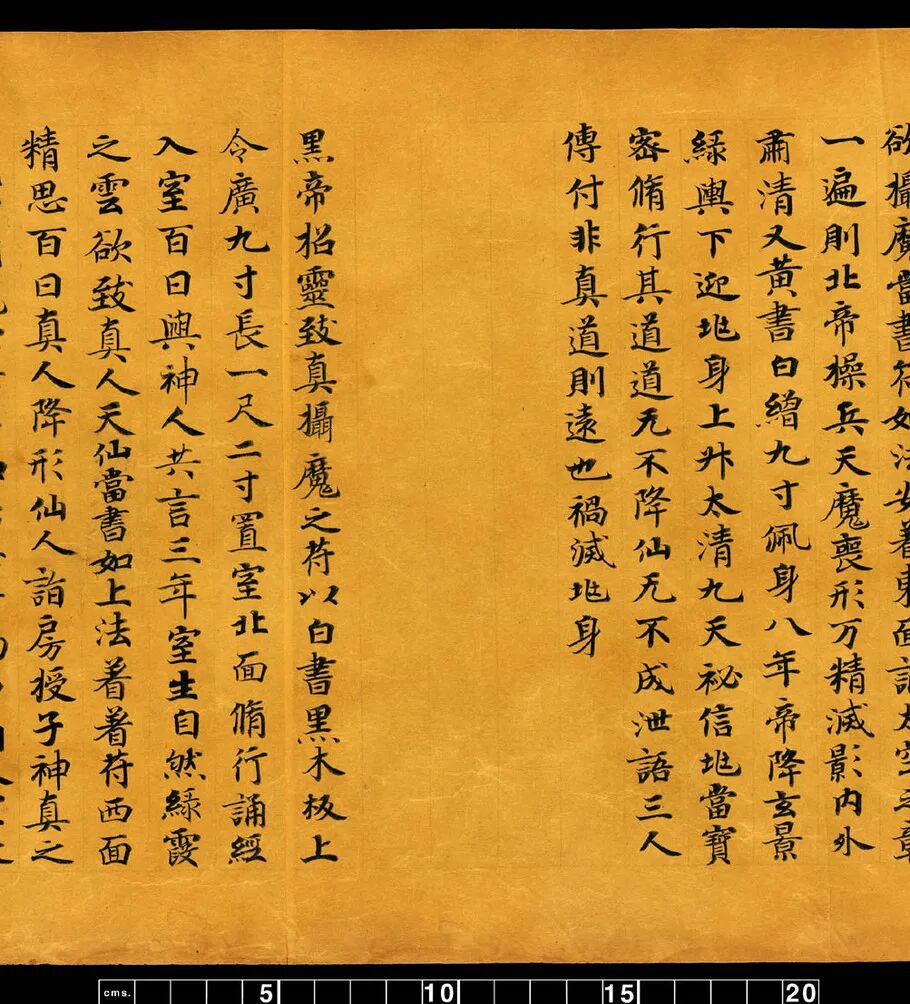 欲攝魔當書苻如法安着東面誦太空之章
一遍則北帝操兵天魔喪形万精滅影內外
肅清又黃書白繒九寸佩身八年帝降玄景
綠輿下迎兆身上升太清九天祕信兆當寶
密脩行其道道无不降仙无不成泄語三人
傳付非真道則遠也禍滅兆身
黑帝招靈致真攝魔之苻以白書黑木板上
令廣九寸長一尺二寸置室北面脩行誦經
入室百日與神人共言三年室生自然綠霞
之雲欲致真人天仙當書如上法着着苻西面
精思百日真人降形仙人詣房授子神真之
cms. 5 10 15 20